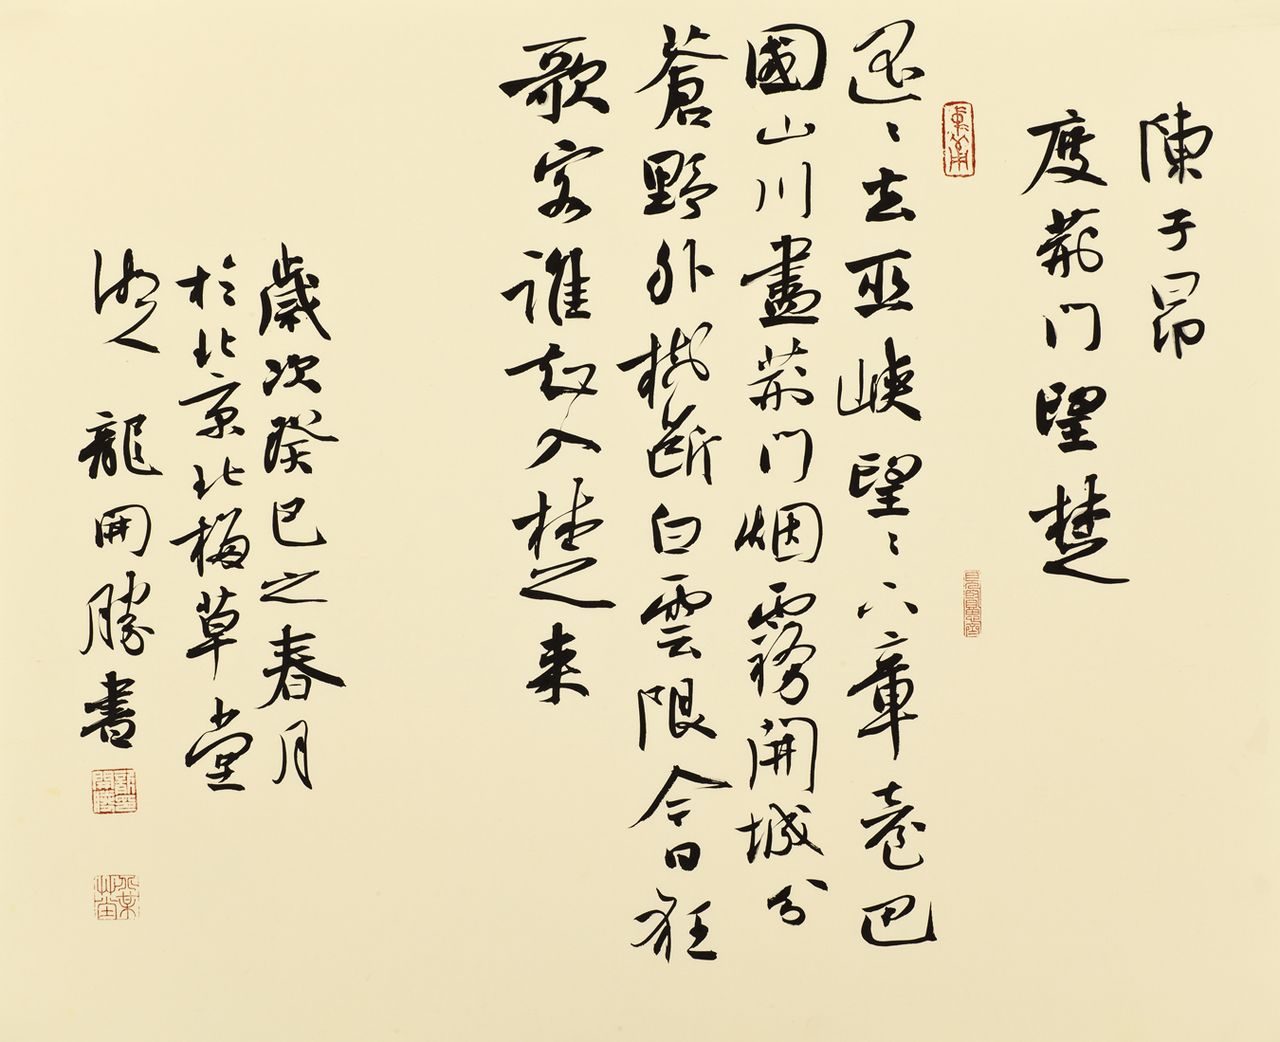 陳子昂
度荆门望楚
遥〻去巫峽望〻下章臺巴
國山川盡荆门烟霧開城分
蒼野外樹断白雲限今日狂
歌客誰知入楚来
歲次癸巳之春月
於北京北梅草堂
湘人 龍開勝書